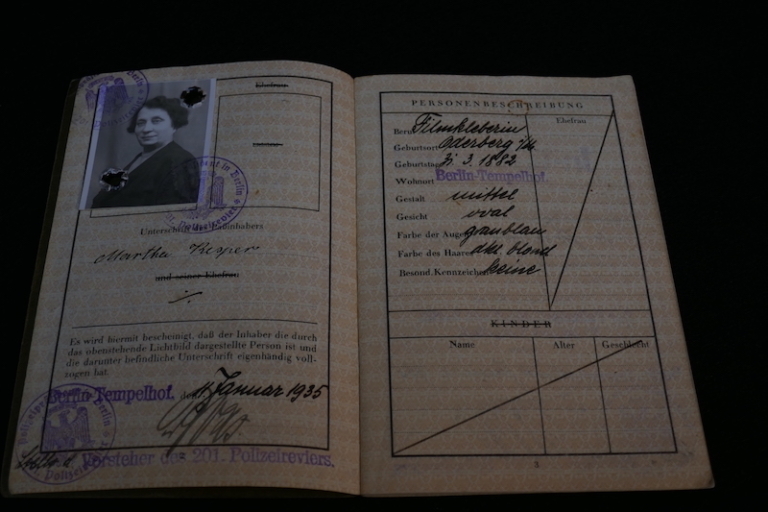 Ehefrau
Unterschrift des Paßinhabers
Martha Kesper
und seiner Ehefrau
Es wird hiermit bescheinigt, daß der Inhaber die durch
das obenstehende Lichtbild dargestellte Person ist und
die darunter befindliche Unterschrift eigenhändig voll-
zogen hat.
Berlin-Tempelhof, den Januar 1935
Vorsteher des 201. Polizeireviers.
PERSONENBESCHREIBUNG
Ehefrau
Beruf Filmkleberin
Geburtsort Oderberg
Geburtstag 3. 1882
Wohnort Berlin-Tempelhof.
Gestalt mittel
Gesicht oval
Farbe der Augen graublau
Farbe des Haares dkl. blond
Besond. Kennzeichen keine
KINDER
Name Alter Geschlecht
3